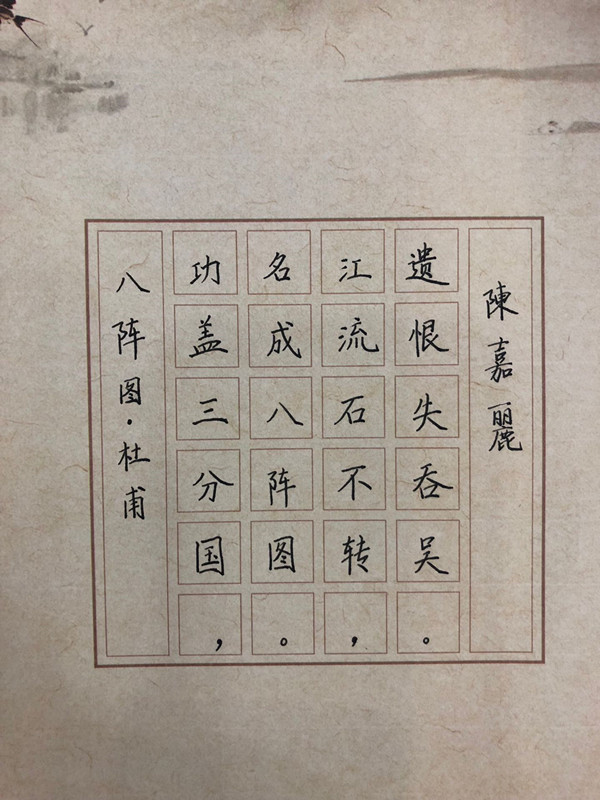 八阵图·杜甫
功盖三分国，
名成八阵图。
江流石不转，
遗恨失吞吴。
陳嘉麗